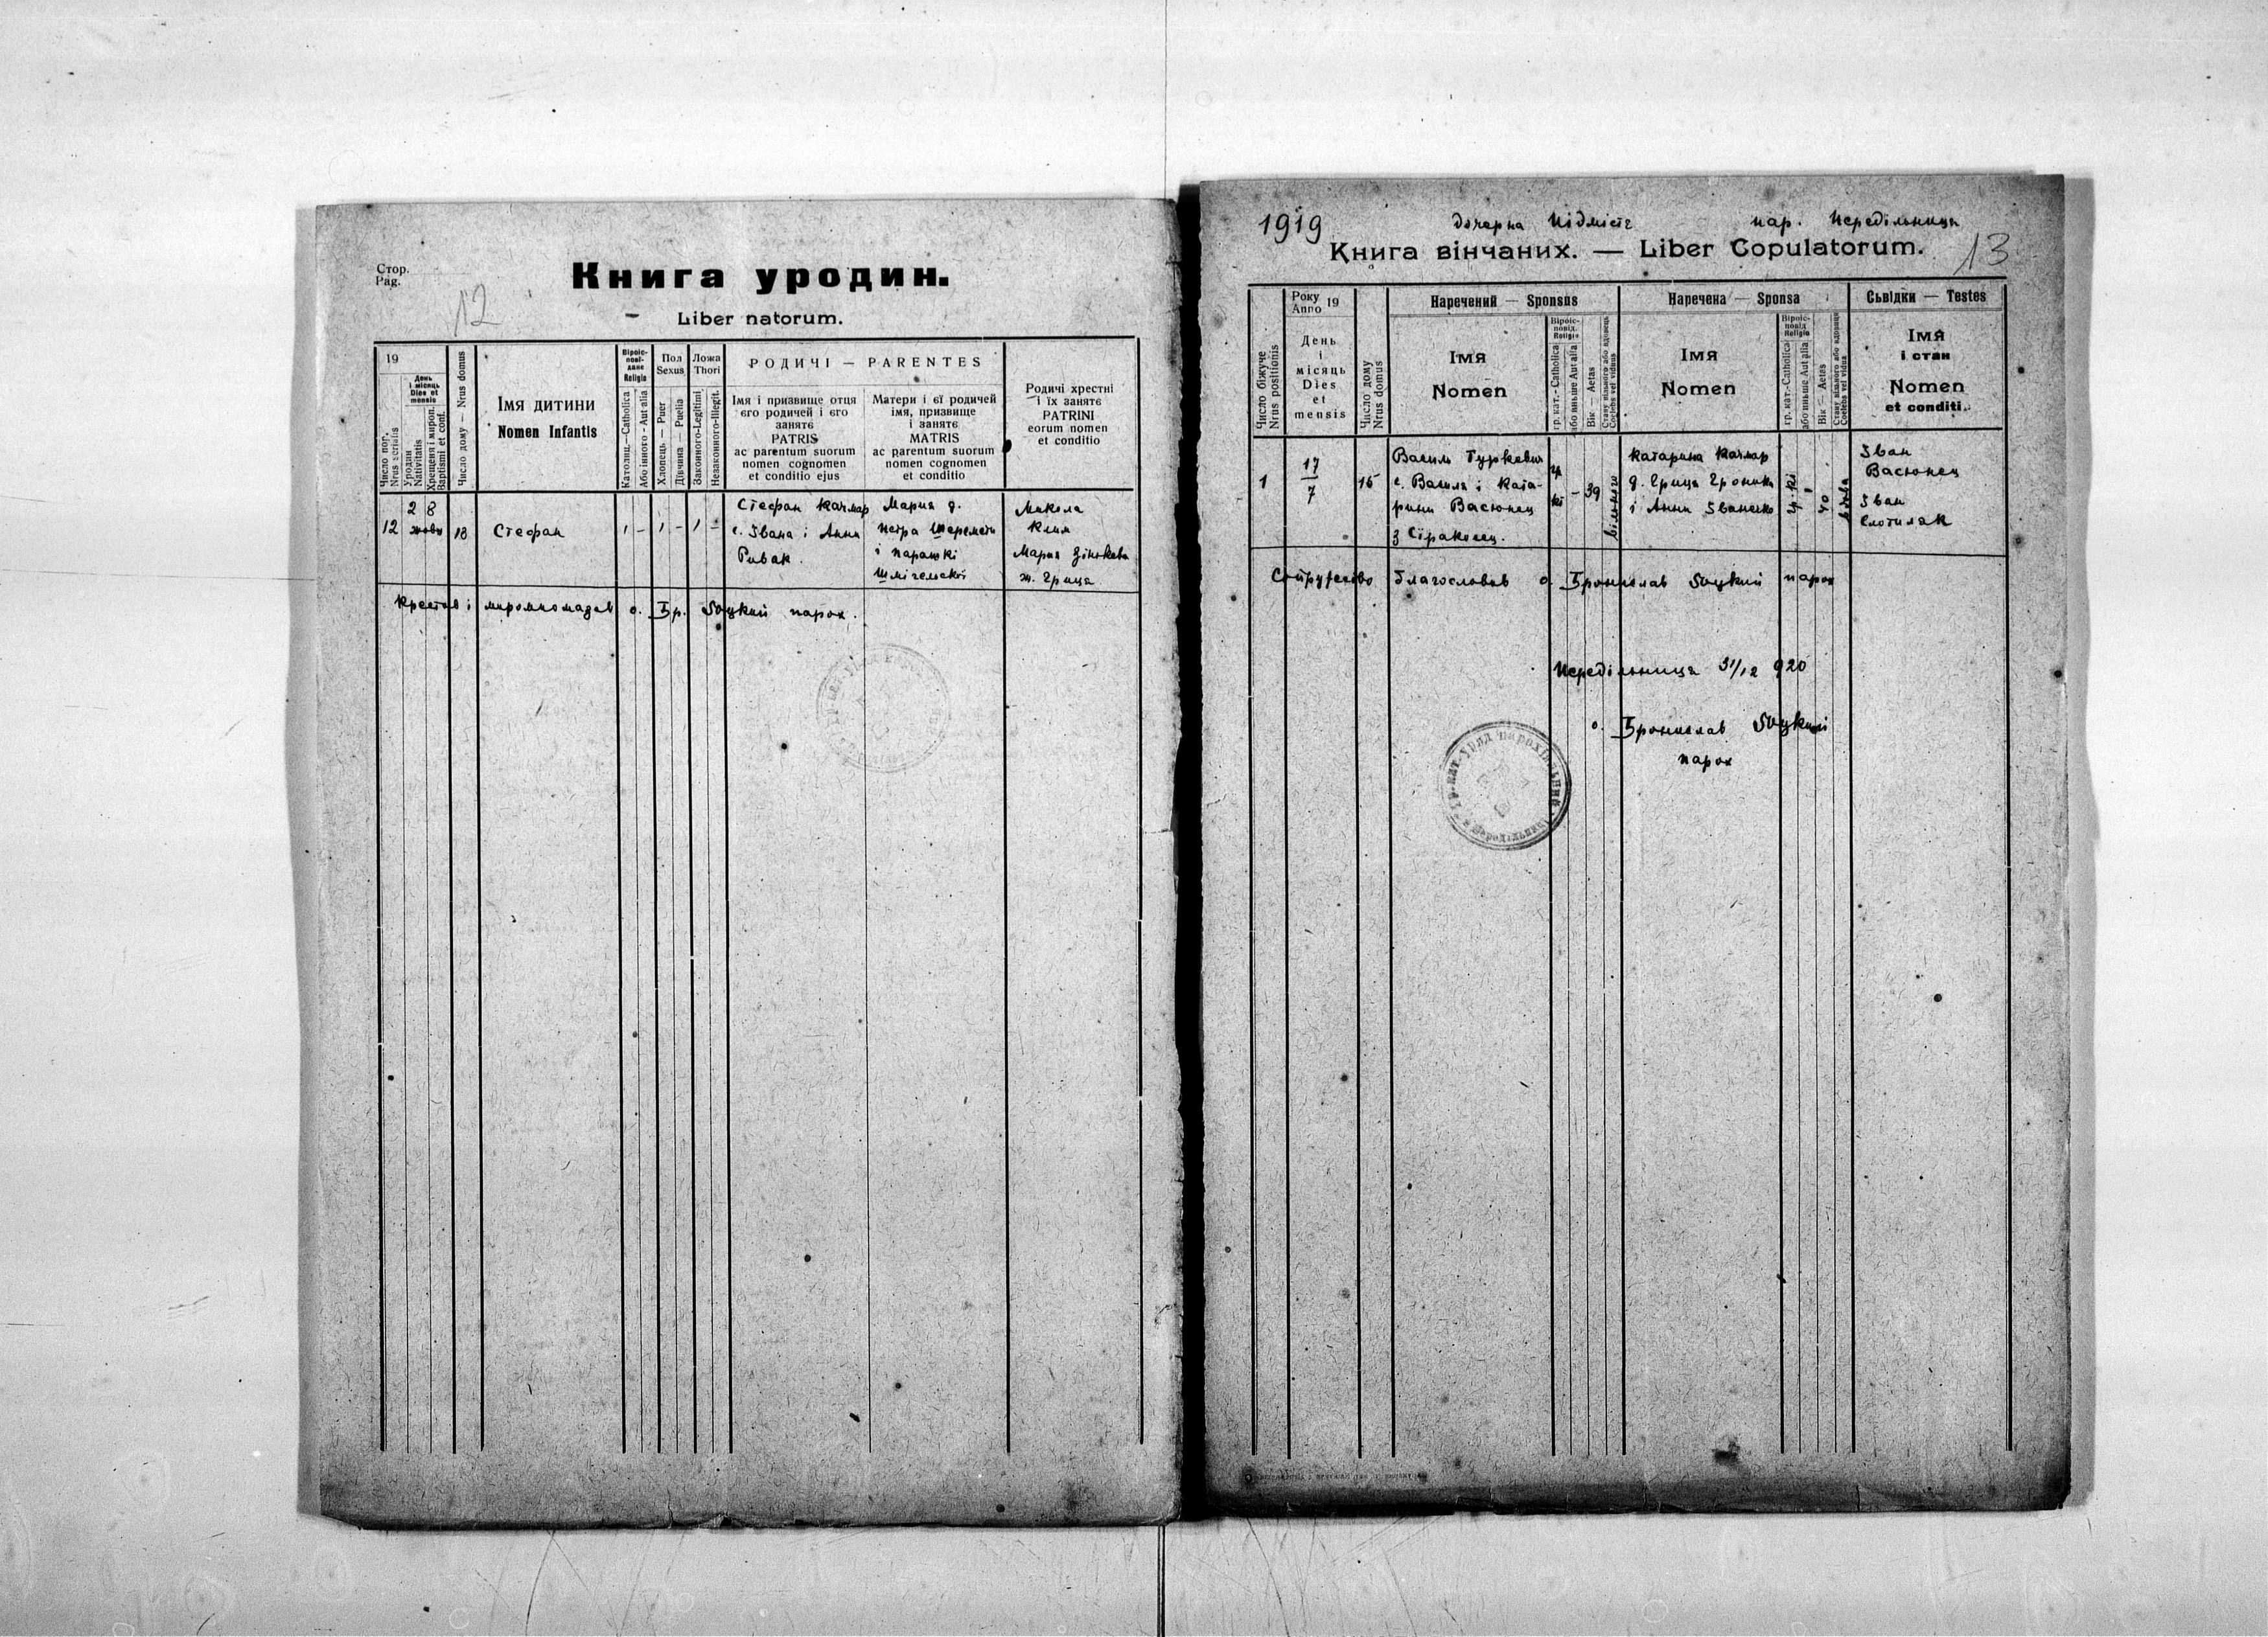 Стор.
Pag.
12
Книга уродин.
Liber natorum.
19
День і місяць Dies et mensis
Число пор. Nrus serialis
Уродин Nativitatis
Хрещеня і миропом. Baptismi et conf.
Число дому — Nrus domus
Імя дитини
Nomen Infantis
Віроісповідане Religio
Католиц.—Catholica
Або інного - Aut alia
Пол
Sexus
Хлопець — Puer
Дівчина — Puella
Ложа
Thori
Законного-Legitimi
Незаконного-Illegit.
РОДИЧІ — PARENTES
Імя і призвище отця
єго родичей і єго
занятє
PATRIS
ac parentum suorum
nomen cognomen
et conditio ejus
Матери і єї родичей
імя, призвище
і занятє
MATRIS
ac parentum suorum
nomen cognomen
et conditio
Родичі хрестні
і їх занятє
PATRINI
eorum nomen
et conditio
12
2 8
жовт
18
Стефан
1 – 1 – 1 –
Стефан Качмар
с. Івана і Анни
Рибак.
Мария д.
Петра Шеремети
і Парашкі
Шмігельскої
Микола
Клим
Мария Зінкева
ж. Гриця
Крестив і миропомазав о. Бр. Іоцкий парох.
1919
дочерна Підмістє
пар. Передільниця
Книга вінчаних. — Liber Copulatorum.
13
Число біжуче
Nrus positionis
Року
Anno 19
День
і
місяць
Dies
et
mensis
Число дому
Nrus domus
Наречений — Sponsus
Імя
Nomen
Віроісповід. Religio
гр. кат.-Catholica
або иньше Aut alia
Вік — Aetas
Стану вільного або вдовець
Coelebs vel viduus
Наречена — Sponsa
Імя
Nomen
Віроісповід Religio
гр. кат.-Catholica
або иньше Aut alia
Вік — Aetas
Стану вільного або вдовиця
Coelebs vel vidua
Сьвідки — Testes
Імя
і стан
Nomen
et conditi.
1
17
7
15
Василь Туркевич
с. Василя і Ката-
рини Васюнец
з Сіраковец.
гр
кт
–
39
вільного
Катарина Качмар
д. Гриця Гроника
і Анни Іванечко
гр.-кт
–
40
вдова
Іван
Васюнец
Іван
Слотиляк
Супружество благословив о Бронислав Іоцкий парох
Передільниця 31/12 920
о. Бронислав Іоцкий
парох
гр.-кат. Уряд парохіяльний
в Передільници